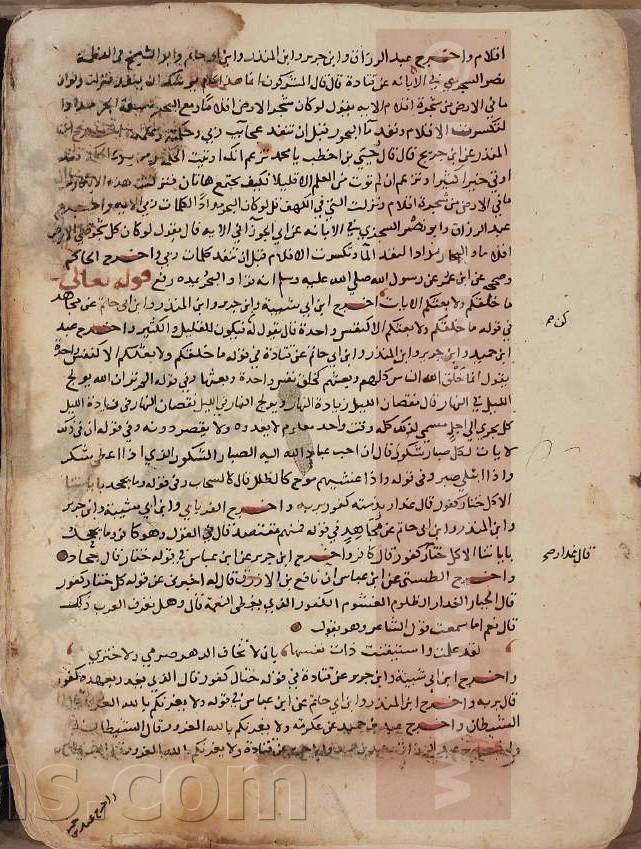 اقلام واخرج عبد الرزاق وابن جرير وابن المنذر وابن ابي حاتم وابو الشيخ في العظمة
نصر السجزي في الابانة عن قتادة قال قال المشركون انما هذا كلام يوشك ان ينفد فنزلت ولو ان
ما في الارض من شجرة اقلام الاية يقول لو كان شجر الارض اقلاما ومع البحر سبعة ابحر مدادا
لتكسرت الاقلام ونفد ماء البحور قبل ان تنفد عجائب ربي وحكمته
المنذر عن ابن جريج قال قال حيي بن اخطب يا محمد تزعم انك اوتيت الحكمة ومن يوت الحكمة فقد
اوتي خيرا كثيرا وتزعم ان لم نوت من العلم الا قليلا فكيف يجتمع هاتان فنزلت هذه الاية ولو ان
ما في الارض من شجرة اقلام ونزلت التي في الكهف قل لو كان البحر مدادا لكلمات ربي الاية واخرج
عبد الرزاق وابو نصر السجزي في الابانة عن ابي الجوزا في الاية قال يقول لو كان كل شجرة في الارض
اقلاما والبحار مدادا لنفد الماء وتكسرت الاقلام قبل ان تنفد كلمات ربي واخرج الحاكم
وصححه عن ابن عمر عن رسول الله صلى الله عليه وسلم انه قرا والبحر يمده رفع قوله تعالى
ما خلقكم ولا بعثكم الايات اخرج ابن ابي شيبة وابن جرير وابن المنذر وابن ابي حاتم عن مجاهد
في قوله ما خلقكم ولا بعثكم الا كنفس واحدة قال يقول له كن فيكون للقليل والكثير واخرج عبد
ابن حميد وابن جرير وابن المنذر وابن ابي حاتم عن قتادة في قوله ما خلقكم ولا بعثكم الا كنفس واحدة
يقول انما خلق الله الناس كلهم وبعثهم كخلق نفس واحدة وبعثها وفي قوله الم تر ان الله يولج
الليل في النهار قال نقصان الليل زيادة النهار ويولج النهار في الليل نقصان النهار في زيادة الليل
كل يجري الى اجل مسمى لذلك كله وقت واحد معلوم لا يعدوه ولا يقصر دونه وفي قوله ان في ذلك
لايات لكل صبار شكور قال ان احب عباد الله اليه الصبار الشكور الذي اذا اعطي شكر
واذا ابتلي صبر وفي قوله واذا غشيهم موج كالظلل قال كالسحاب وفي قوله وما يجحد باياتنا
الا كل ختار كفور قال غدار بذمته كفور بربه واخرج الفريابي وابن ابي شيبة وابن جرير
وابن المنذر وابن ابي حاتم عن مجاهد في قوله فمنهم مقتصد قال في القول وهو كافر وما يجحد
باياتنا الا كل ختار كفور قال كافر واخرج ابن جرير عن ابن عباس في قوله ختار قال جحاد
واخرج الطستي عن ابن عباس ان نافع بن الازرق قال له اخبرني عن قوله كل ختار كفور
قال الجبار الغدار الظلوم الغشوم الكفور الذي يغطي النعمة قال وهل تعرف العرب ذلك
قال نعم اما سمعت قول الشاعر وهو يقول
لقد علمت واستيقنت ذات نفسها بان لا تخاف الدهر صرمي ولا ختري
واخرج ابن ابي شيبة وابن جرير عن قتادة في قوله ختال كفور قال الذي يغدر بعهده كفور
قال بربه واخرج ابن المنذر وابن ابي حاتم عن ابن عباس في قوله ولا يغرنكم بالله الغرور قال
الشيطان واخرج عبد بن حميد عن عكرمة ولا يغرنكم بالله الغرور قال الشيطان
عن قتادة ولا يغرنكم بالله الغرور
قال غدار صح
واخرج عبد بن
ns.com